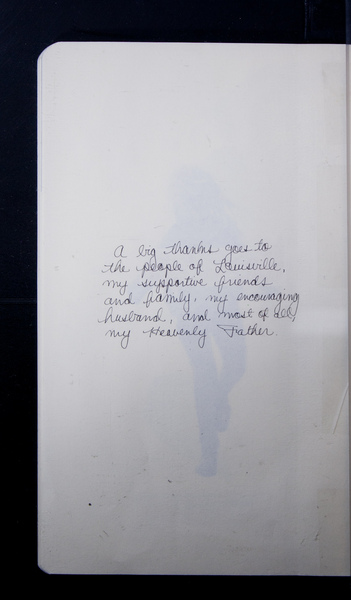 A big thanks goes to
the people of Louisville,
my supportive friends
and family, my encouraging
husband, and most of all,
my Heavenly Father.